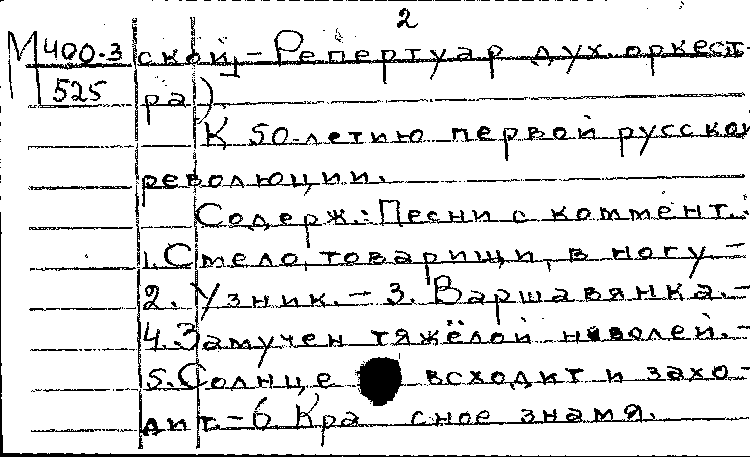 2
М 400-3 ской, - Репертуар дух. оркест-
525 ра).
К 50-летию первой русской
революции.
Содерж.: Песни с коммент.:
1. Смело, товарищи, в ногу. -
2. Узник. - 3. Варшавянка. -
4. Замучен тяжёлой неволей. -
5. Солнце всходит и захо-
дит. - 6 Кра сное знамя.